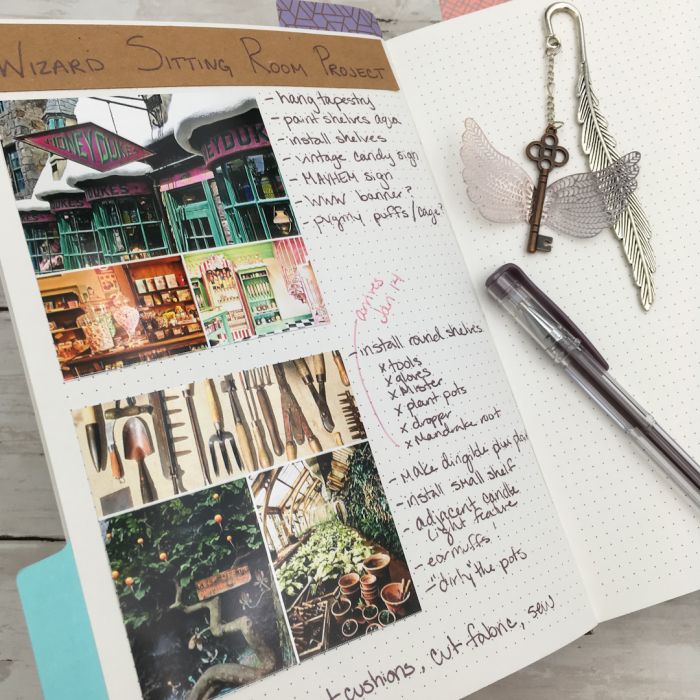 WIZARD SITTING ROOM PROJECT
HONEYDUKES
- hang tapestry
- paint shelves aqua
- install shelves
- vintage candy sign
- MAYHEM sign
- WWW banner?
- pygmy puffs/cage?
arrives
Jan 14
- install round shelves
x tools
x gloves
x Mister
x plant pots
x dropper
x Mandrake root
- Make dirigible plum plant
- install small shelf
- adjacent candle
light feature
- earmuffs!
- "dirty" the pots
cushions, cut fabric, sew